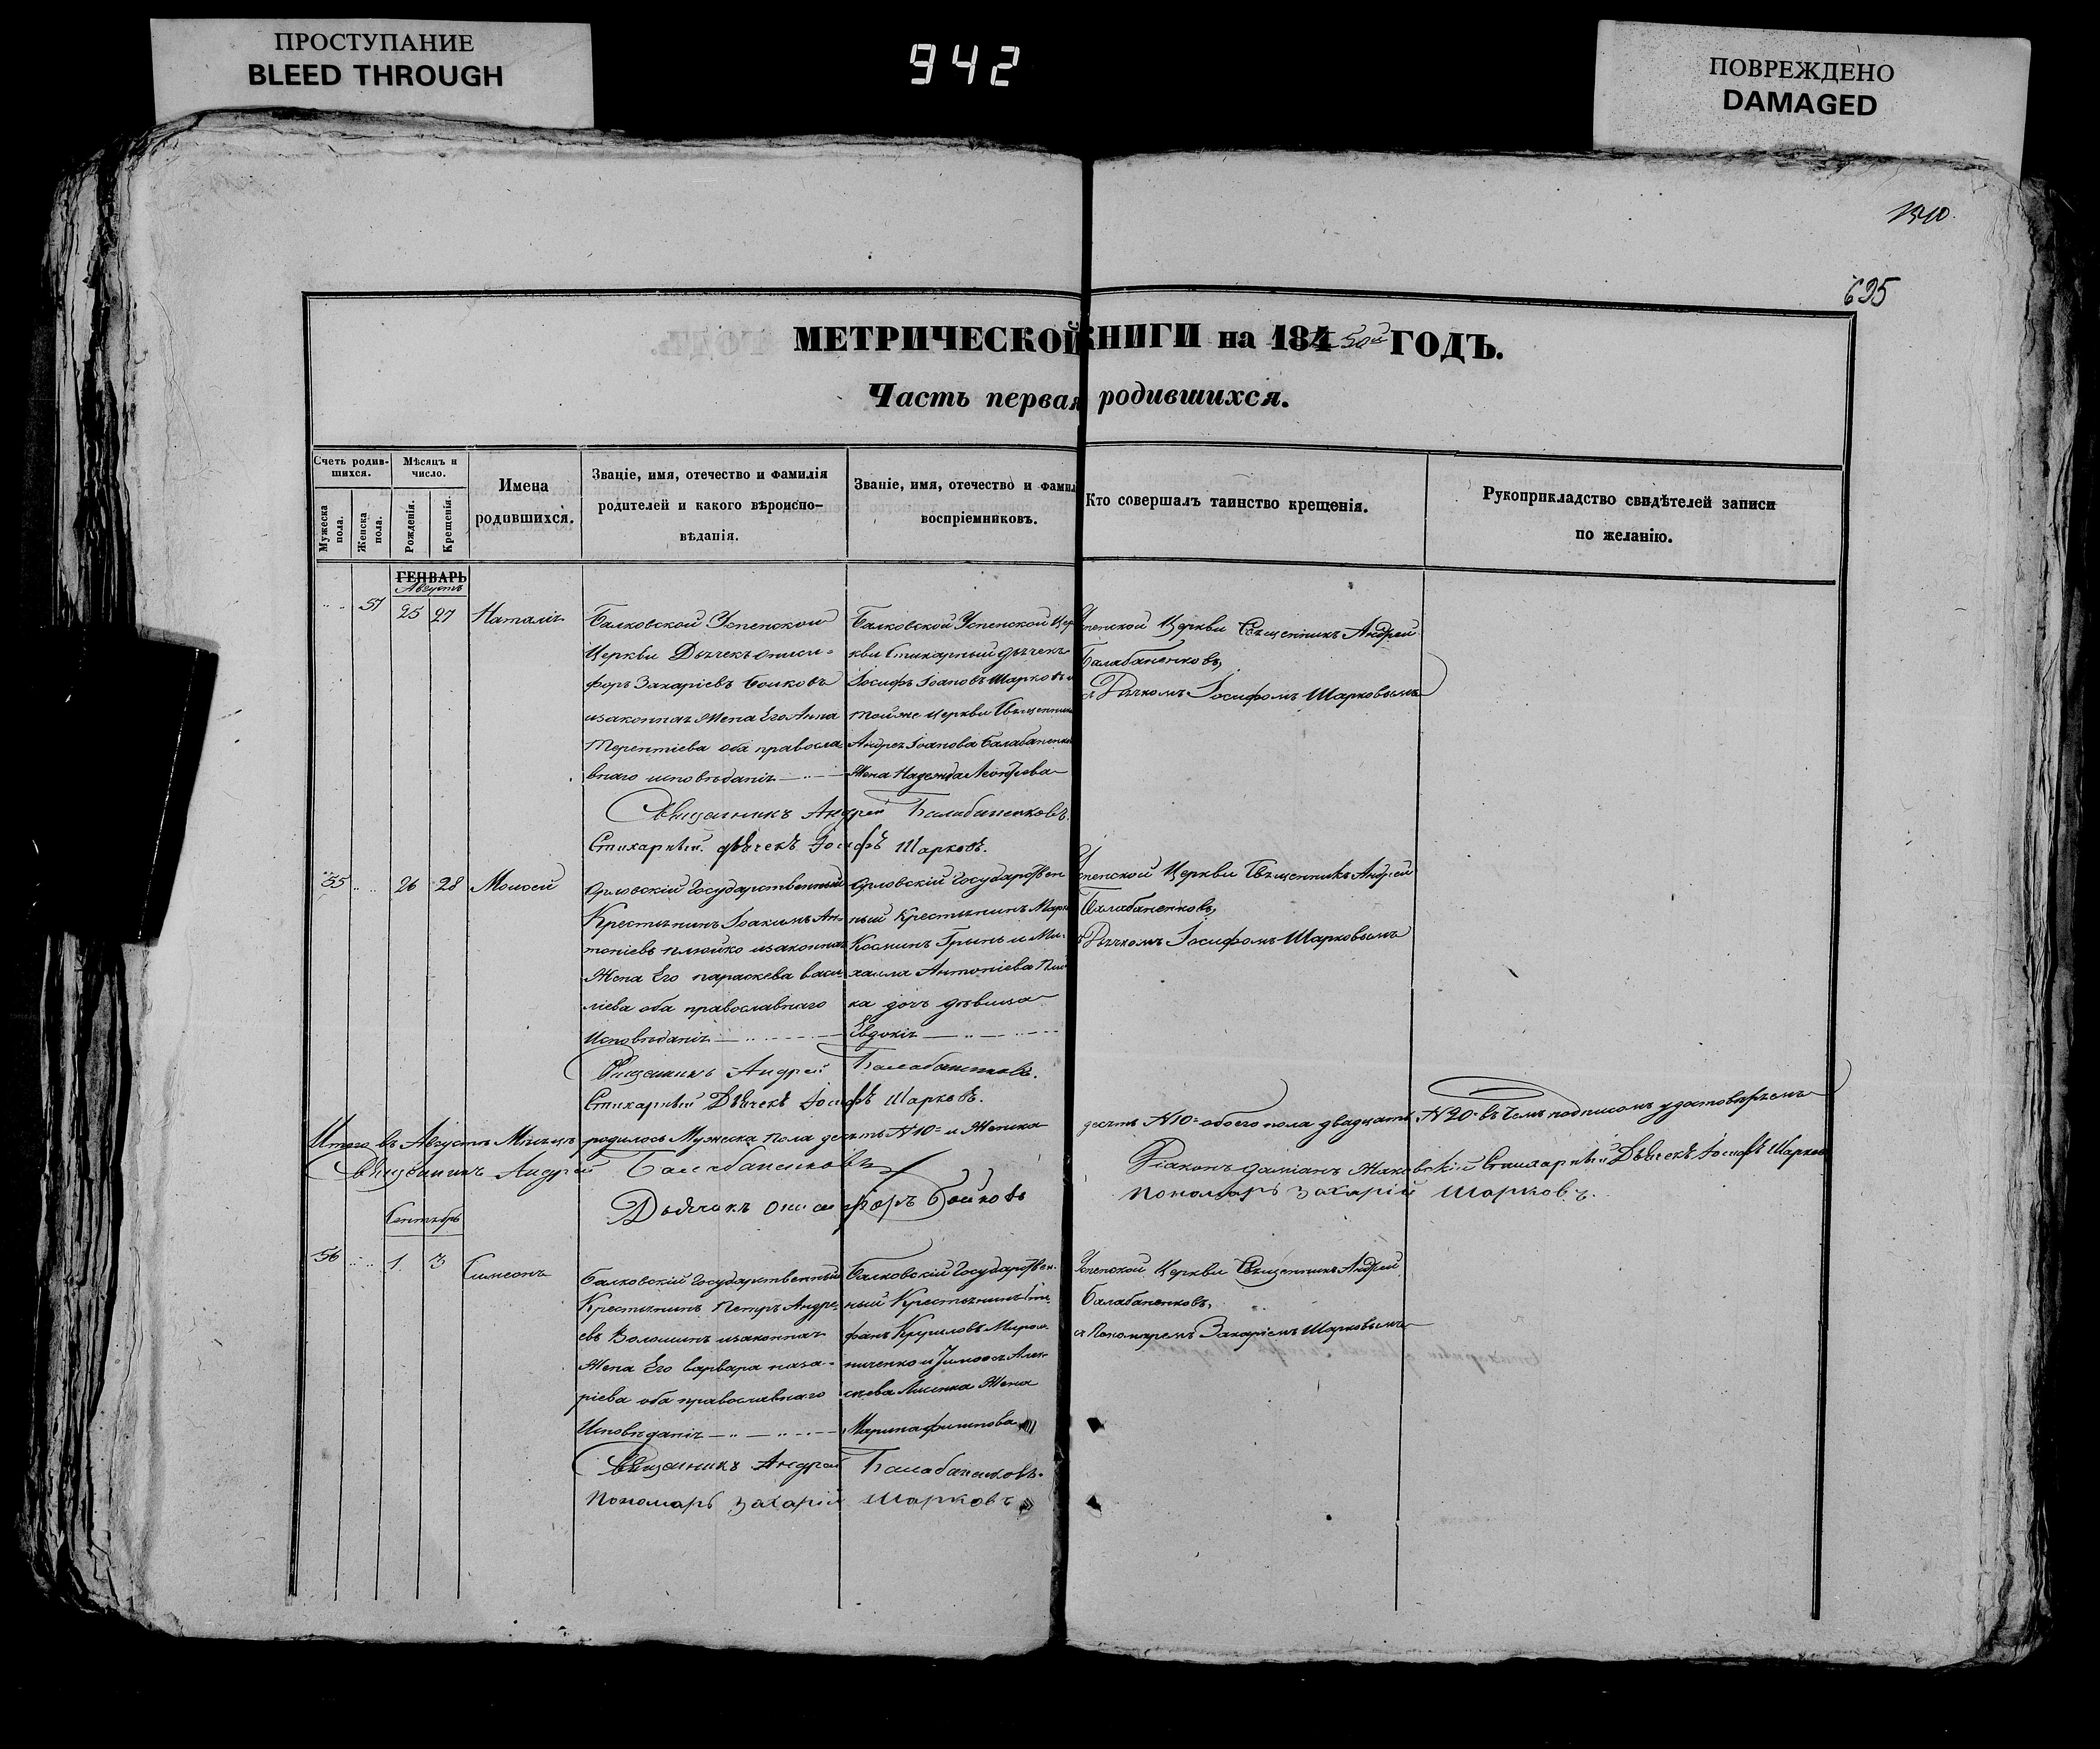 ПРОСТУПАНИЕ
BLEED THROUGH
942
ПОВРЕЖДЕНО
DAMAGED
1340.
695
МЕТРИЧЕСКОЙ КНИГИ на 184 50й ГОДЪ.
Часть первая родившихся.
Счетъ родив-
шихся.
Мужеска пола.
Женска пола.
Мѣсяцъ и
число.
Рожденія.
Крещенія.
Имена
родившихся.
Званіе, имя, отечество и фамилія
родителей и какого вѣроиспо-
вѣданія.
Званіе, имя, отечество и фамил
воспріемниковъ.
Кто совершалъ таинство крещенія.
Рукоприкладство свидѣтелей записи
по желанію.
ГЕНВАРЬ
Августъ
57 25 27 Наталія
Балковской Успенской
Церкви Дьячекъ Ониси-
форъ Захаріевъ Бойковъ
и законная Жена Его Анна
Терентіева оба правосла-
внаго исповѣданія
Балковской Успенской Цер
кви Стихарный дьячекъ
Іосифъ Іоановъ Шарковъ и
той же церкви Священника
Андрея Іоанова Балабаненко
Жена Надежда Леонтіева
Успенской Церкви Священникъ Андрей
Балабаненковъ,
съ Дьячкомъ Іосифомъ Шарковымъ
Священникъ Андрей Балабаненковъ.
Стихарный дьячекъ Іосифъ Шарковъ.
55 26 28 Моисей
Орловскій Государственный
Крестьянинъ Іоакимъ Ан-
тоніевъ Плюйко и законная
Жена Его Параскева Васи-
ліева оба православнаго
Исповѣданія
Орловскій Государствен
ный Крестьянинъ Марко
Косминъ Гринь и Ми-
хаила Антоніева Плюй
ка дочь дѣвица
Евдокія
Успенской Церкви Священникъ Андрей
Балабаненковъ,
съ Дьячкомъ Іосифомъ Шарковымъ
Священникъ Андрей Балабаненковъ.
Стихарный Дьячекъ Іосифъ Шарковъ.
Итого въ Августѣ Мѣсяцѣ родилось Мужеска пола десять N 10= и Женска десять N 10= обоего пола двадцать N 20= въ чемъ подписомъ удостовѣряемъ
Священникъ Андрей Балабаненковъ
Діаконъ Даміанъ Стихарный Дьячекъ Іосифъ Шарковъ
Дьячокъ Онисифоръ Бойковъ
Пономарь Захарій Шарковъ.
Сентябрь
56 1 3 Симеонъ
Балковскій Государственный
Крестьянинъ Петръ Андре-
евъ Волошинъ и законная
Жена Его Варвара Наза-
ріева оба православнаго
Исповѣданія
Балковскій Государствен-
ный Крестьянинъ Сте-
фанъ Кириловъ Мирош-
ниченко и Тимофея Алек-
сѣева Лисенка Жена
Марина Филипова
Успенской Церкви Священникъ Андрей
Балабаненковъ,
съ Пономаремъ Захаріемъ Шарковымъ
Священникъ Андрей Балабаненковъ.
Пономарь Захарій Шарковъ